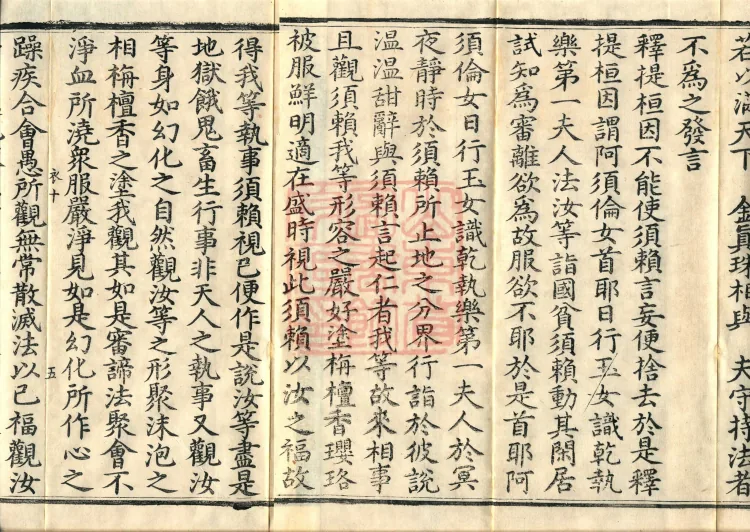 不為之發言
釋提桓因不能使須賴言妄便捨去於是釋
提桓因謂阿須倫女首耶日行玉女識乾執
樂第一夫人法汝等詣國貧須賴動其閑居
試知為審離欲為故服欲不耶於是首耶阿
須倫女日行玉女識乾執樂第一夫人於冥
夜靜時於須賴所止地之分界行詣於彼說
溫溫甜辭與須賴言起仁者我等故來相事
且觀須賴我等形容之嚴好塗栴檀香瓔珞
被服鮮明適在盛時視此須賴以汝之福故
得我等執事須賴視已便作是說汝等盡是
地獄餓鬼畜生行事非天人之執事又觀汝
等身如幻化之自然觀汝等之形聚沫泡之
相栴檀香之塗我觀其如是審諦法聚會不
淨血所澆眾服嚴淨見如是幻化所作心之
躁疾合會愚所觀無常散滅法以已福觀汝